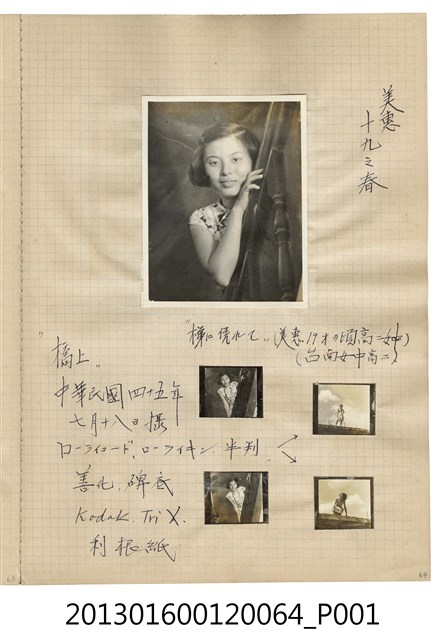 美惠
十九之春
"梯に凭れて" 美惠19才の頃高二
(台南女中高二)
"橋上"
中華民國四十五年
七月十八日攝
ローライコード、ローライキン 半判
善化、碑底
Kodak. Tri X.
利根紙
63
64
201301600120064_P001